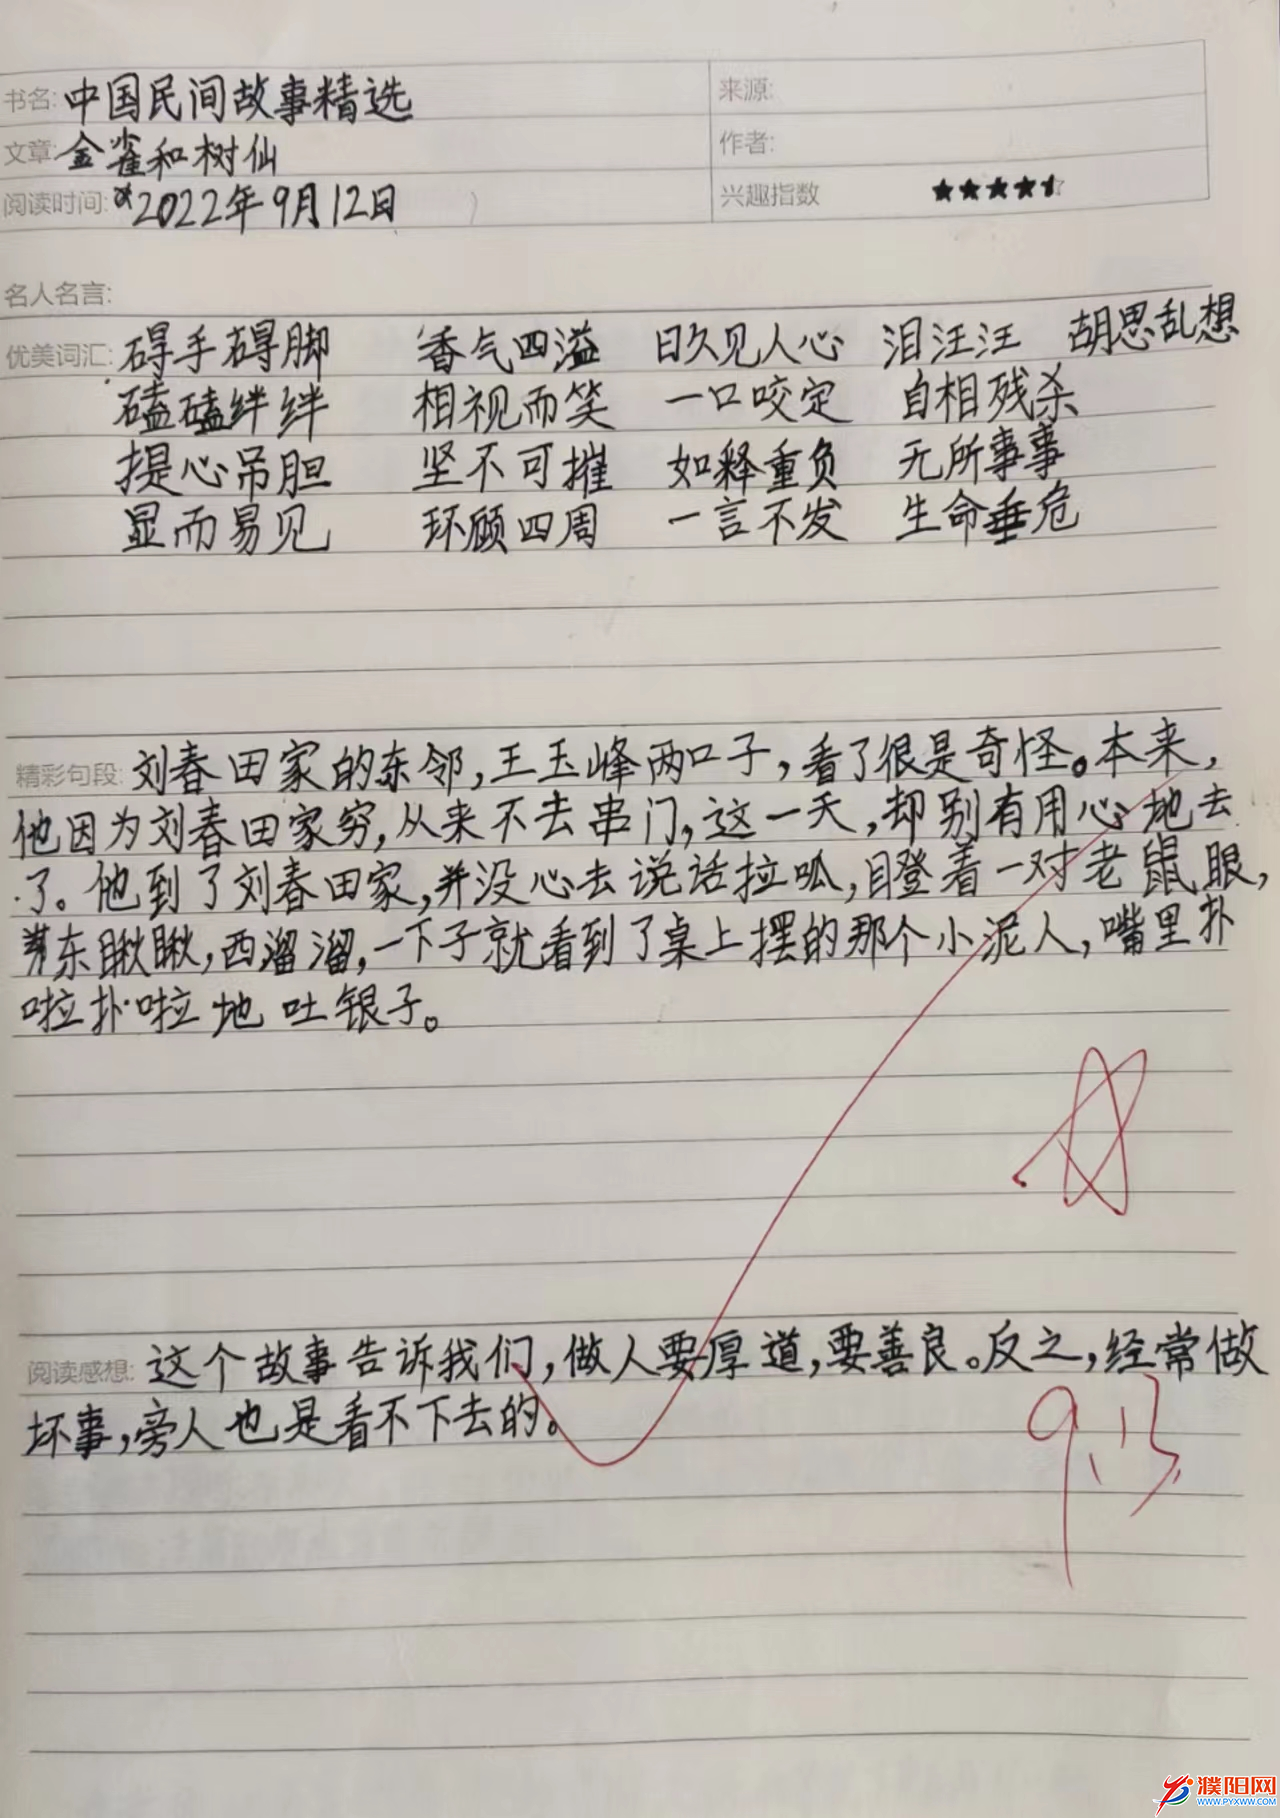 书名: 中国民间故事精选 来源:
文章: 金雀和树仙 作者:
阅读时间: 2022年9月12日 兴趣指数 ★★★★⯪
名人名言:
优美词汇: 碍手碍脚 香气四溢 日久见人心 泪汪汪 胡思乱想
磕磕绊绊 相视而笑 一口咬定 自相残杀
提心吊胆 坚不可摧 如释重负 无所事事
显而易见 环顾四周 一言不发 生命垂危
精彩句段: 刘春田家的东邻,王玉峰两口子,看了很是奇怪。本来,
他因为刘春田家穷,从来不去串门,这一天,却别有用心地去
了。他到了刘春田家,并没心去说话拉呱,瞪着一对老鼠眼,
东瞅瞅,西溜溜,一下子就看到了桌上摆的那个小泥人,嘴里扑
啦扑啦地吐银子。
阅读感想: 这个故事告诉我们,做人要厚道,要善良。反之,经常做
坏事,旁人也是看不下去的。
9.13
濮阳网
WWW.PYXWW.COM